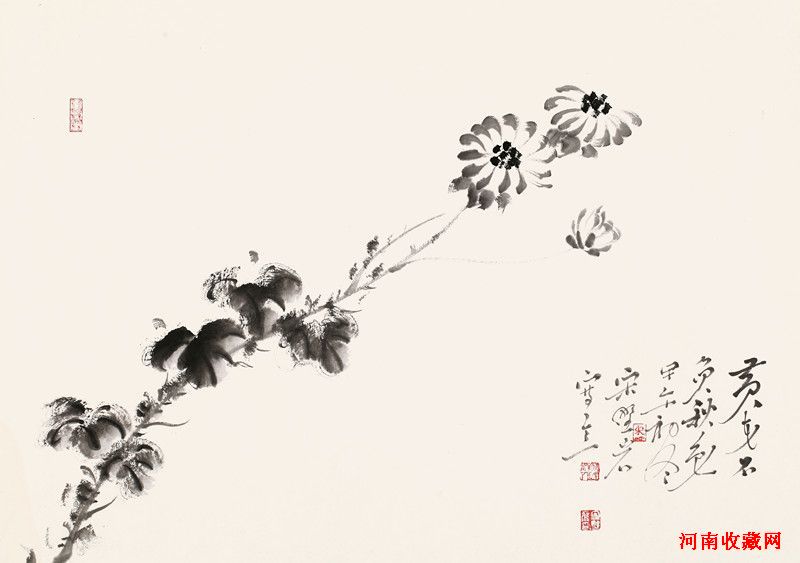 黄花不
负秋意
甲午初冬
宋野岩
写意
河南收藏网